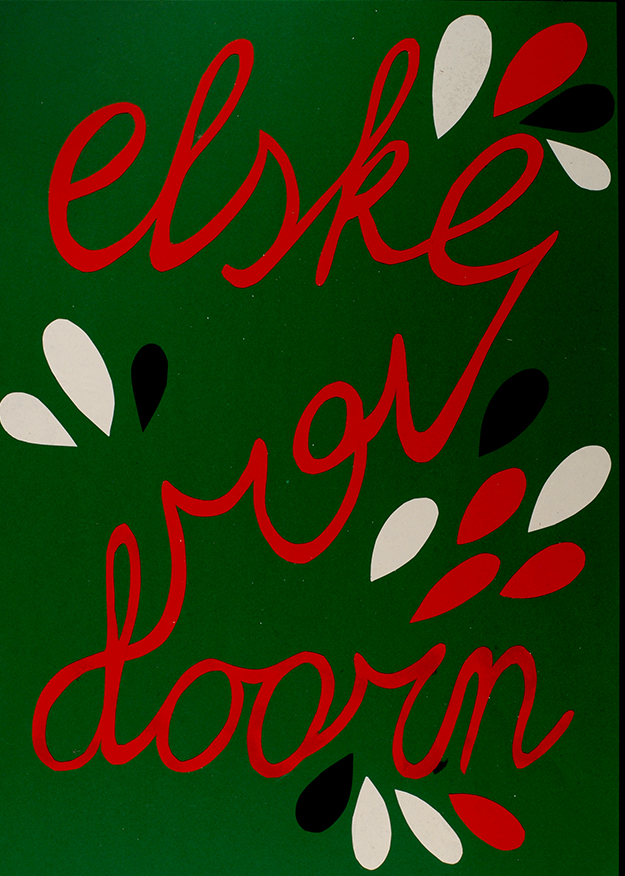 elske
van
doorn